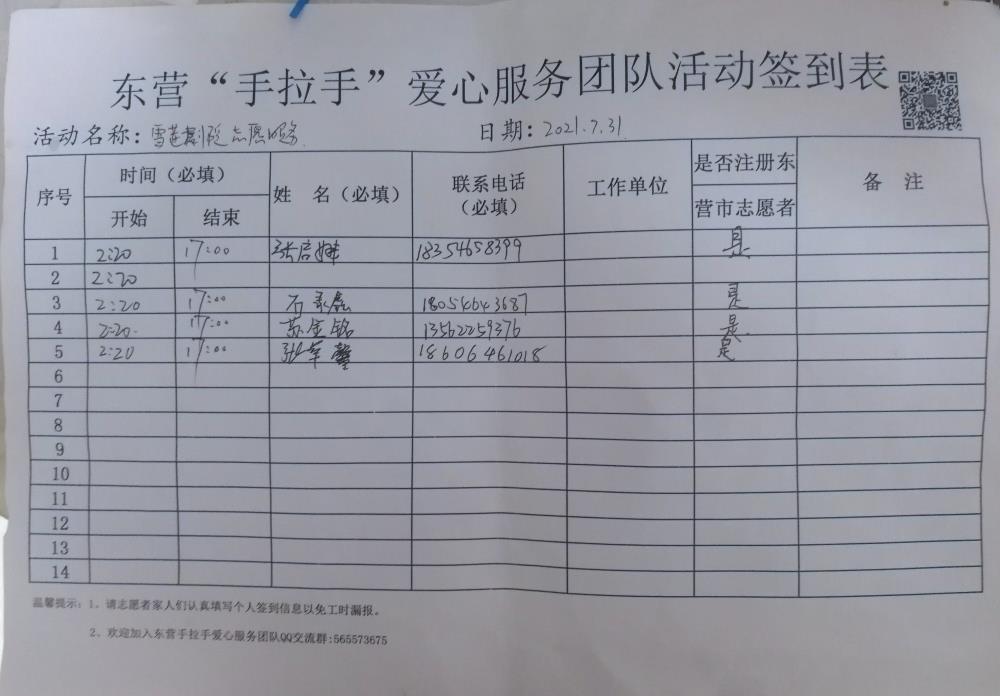 东营“手拉手”爱心服务团队活动签到表
活动名称：雪莲剧院志愿服务 日期：2021.7.31
序号 时间（必填） 姓 名（必填） 联系电话（必填） 工作单位 是否注册东营市志愿者 备 注
开始 结束
1 2:20 17:00 张启 18354658399 是
2 2:20
3 2:20 17:00 石 18054643687 是
4 2:20 17:00 苏金铭 13562259376 是
5 2:20 17:00 张 馨 18606461018 是
6
7
8
9
10
11
12
13
14
温馨提示：1、请志愿者家人们认真填写个人签到信息以免工时漏报。
2、欢迎加入东营手拉手爱心服务团队QQ交流群:565573675